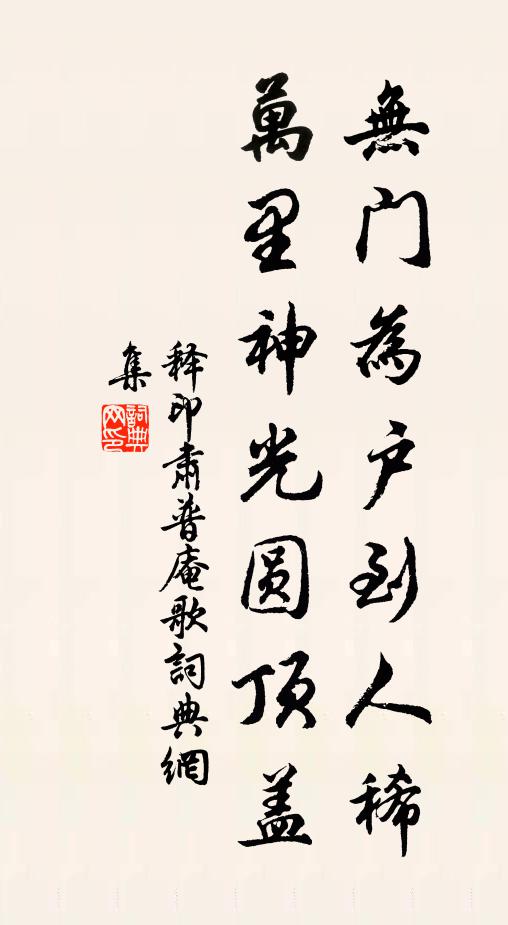 無门為户到人稀
萬里神光圆顶盖
释印肃普庵歌詞典網
集
詞典网印